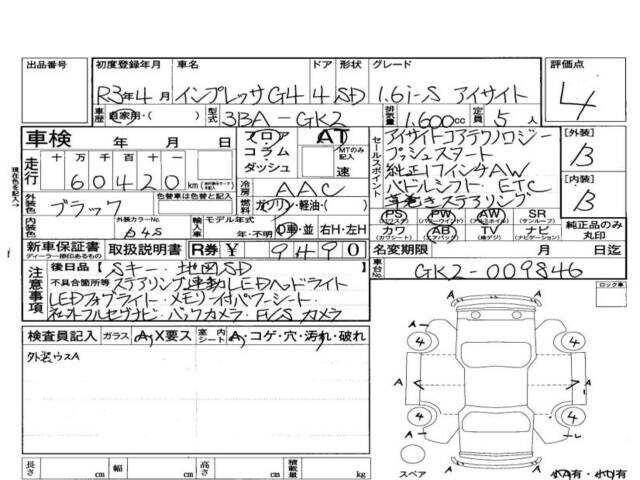 出品番号 初度登録年月 車名 ドア 形状 グレード 評価点
R3年4月 インプレッサG4 4 SD 1.6i-S アイサイト 4
車歴 自家用・( ) 型式 3BA-GK2 排気量 1,600cc 定員 5人
車検 年 月 日 フロア コラム ダッシュ AT MTのみ記入 速
走行 十 万 千 百 十 一
60420 km
冷房 AAC
燃料 ガソリン・軽油・( )
外装色 ブラック 色替車は色替と記入
内装色 外装カラーNo. D4S 輸入車 モデル年式 年・不明 D車・並 右H・左H
セールスポイント アイサイトコアテクノロジー
プッシュスタート
純正17インチAW
パドルシフト ETC
革巻きステアリング
PS (パワステ) PW (パワーウィンド) AW (アルミホイル) SR (サンルーフ)
カワ (カワシート) AB (エアバッグ) TV (純デジ) ナビ (ナビゲーション) 純正品のみ丸印
[外装] B
[内装] B
新車保証書 ディーラー捺印あるもの 取扱説明書 R券 ¥ 9490 名変期限 月 日迄
車台No. GK2-009846
現在色を記入→
注意事項 後日品 Sキー・地図SD
不具合箇所等 ステアリング連動LEDヘッドライト
LEDフォグライト・メモリー付パワーシート・
ナビ・フルセグナビ・バックカメラ・F/Sカメラ
ロック車
検査員記入 ガラス A・X要ス 室内シート A・コゲ・穴・汚れ・破れ
外装ウスA
A
4 4
A A A
4 4
A A
スペア 小A有・小U有
長さ cm 幅 cm 高さ cm 積載量 kg